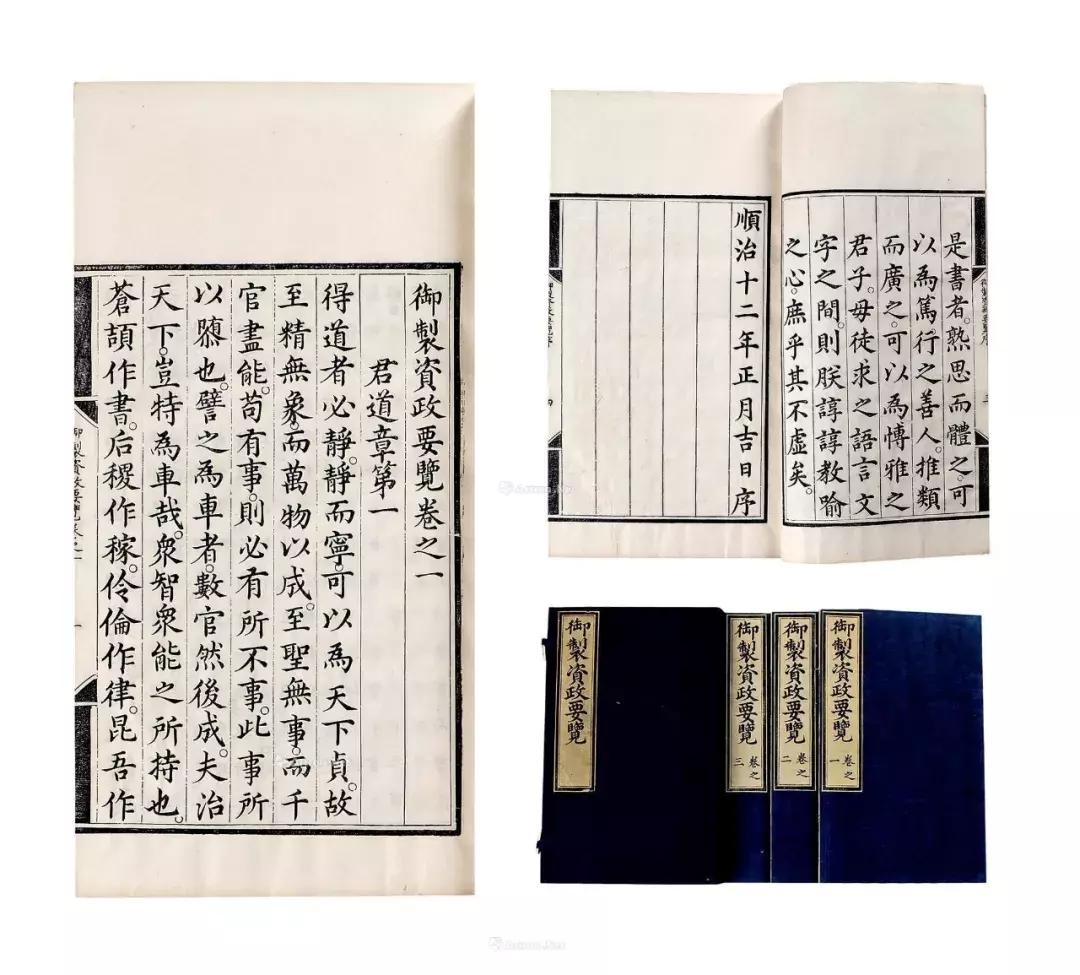 御製資政要覽卷之一
君道章第一
得道者必靜。靜而寧。可以為天下貞。故
至精無象。而萬物以成。至聖無事。而千
官盡能。苟有事。則必有所不事。此事所
以隳也。譬之為車者。數官然後成。夫治
天下。豈特為車哉。衆智衆能之所持也。
蒼頡作書。后稷作稼。伶倫作律。昆吾作
御製資政要覽卷之一
是書者。熟思而體之。可
以為篤行之善人。推類
而廣之。可以為博雅之
君子。毋徒求之語言文
字之間。則朕諄諄教喻
之心。庶乎其不虛矣。
順治十二年正月吉日序
御製資政要覽序
三
御製資政要覽序
四
御製資政要覽
御製資政要覽 卷之三
御製資政要覽 卷之二
御製資政要覽 卷之一